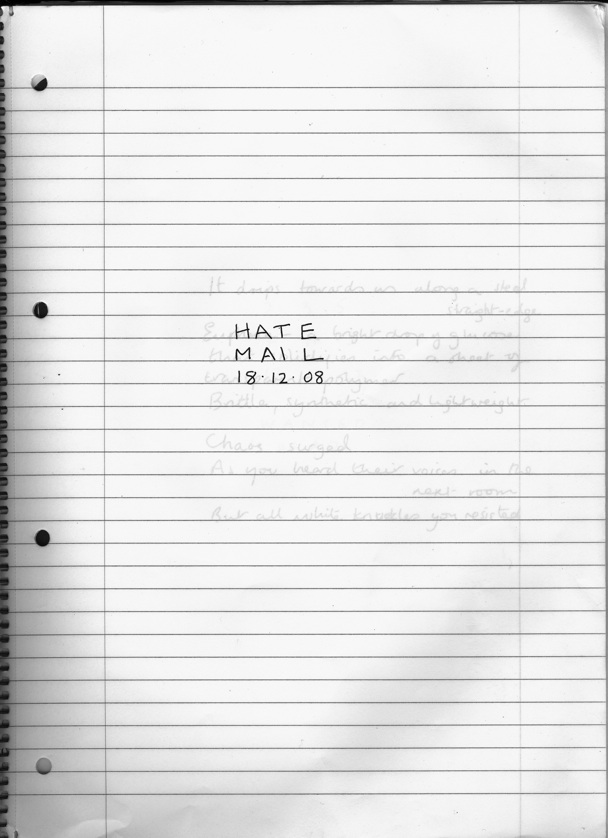 HATE
MAIL
18·12·08
It drops towards us along a steel
straight-edge
bright drop of glucose
into a sheet of
polymer
Brittle, synthetic and lightweight
Chaos surged
As you heard their voices in the
next room
But all white knuckles you resisted